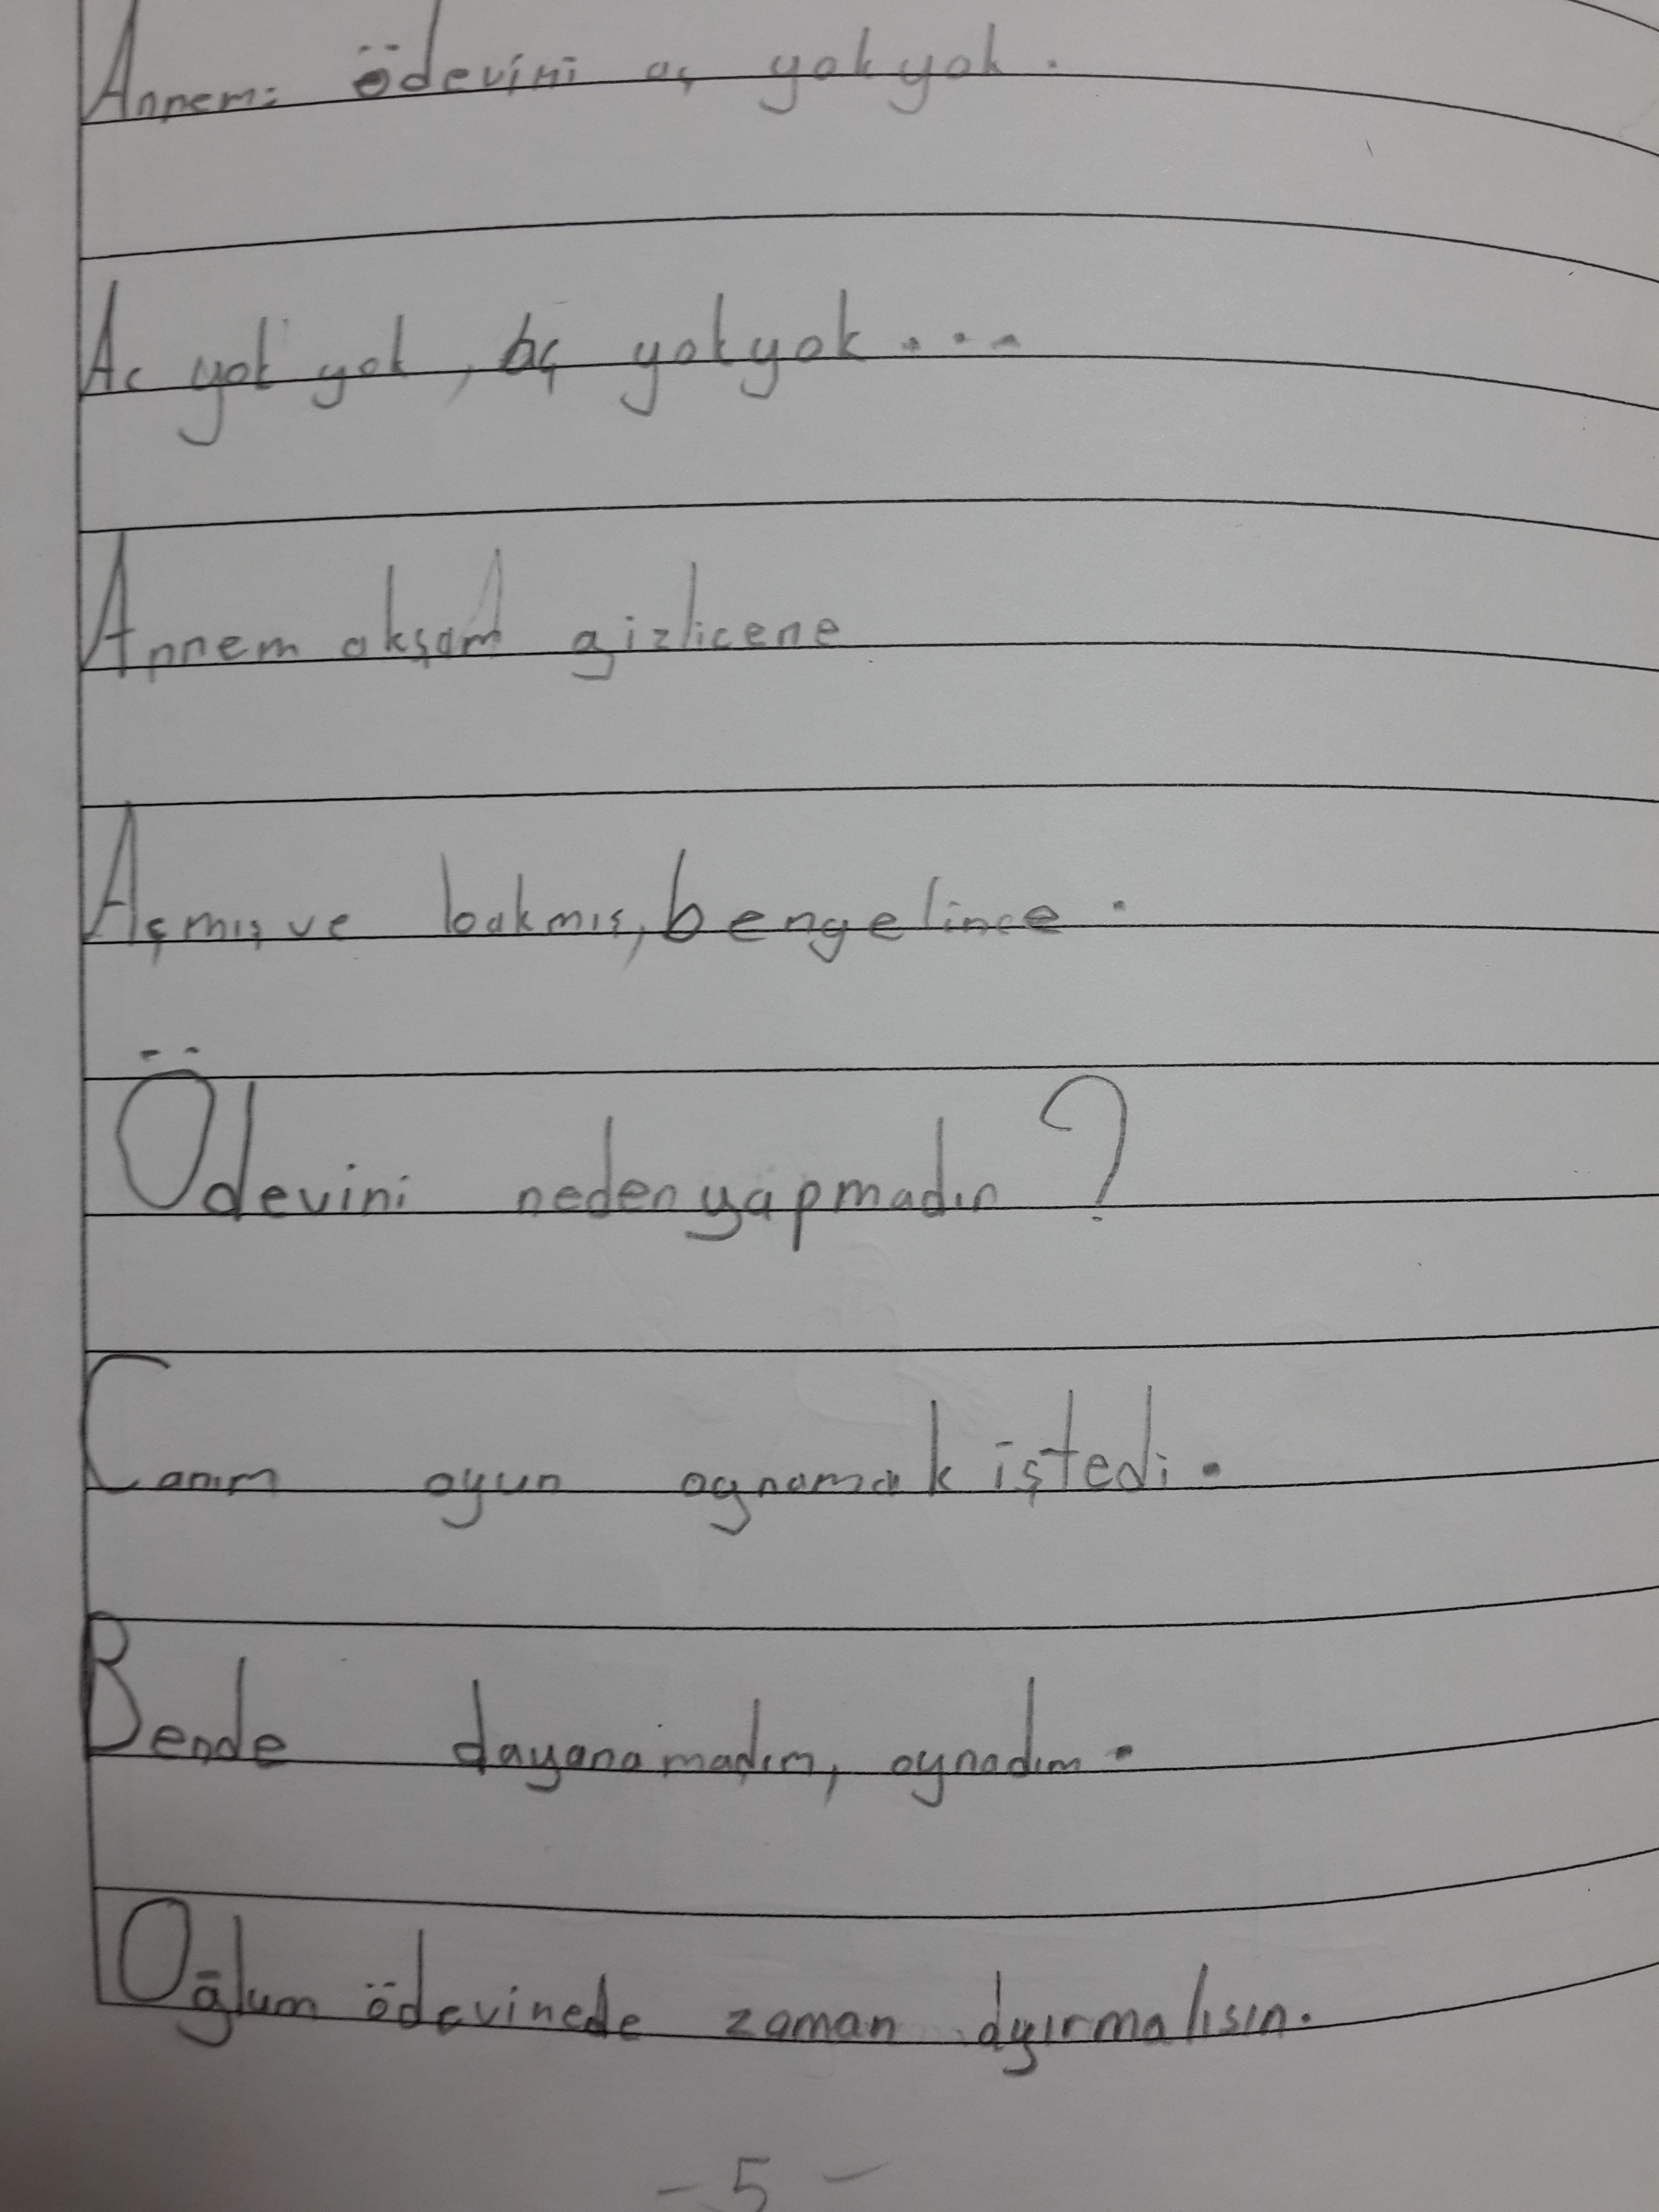 Annem: ödevini aç yok yok.
Ac yok yok, aç yok yok...
Annem akşam gizlicene
Açmış ve bakmış, ben gelince.
Ödevini neden yapmadın?
Canım oyun oynamak iştedi.
Bende dayanamadım, oynadım.
Oğlum ödevinede zaman ayırmalısın.
- 5 -